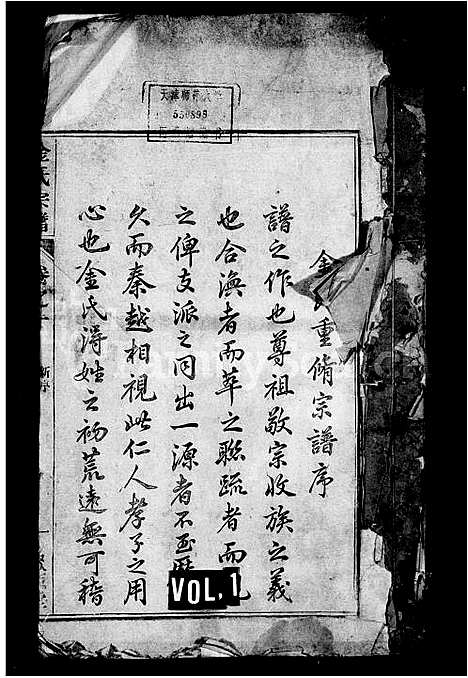 金氏重脩宗譜序
譜之作也尊祖敬宗收族之義
也合渙者而萃之聯疏者而
之俾支派之同出一源者不至
久而秦越相視此仁人孝子之用
心也金氏得姓之初荒遠無可稽
金氏宗譜
新序
天津師範
550898
VOL. 1